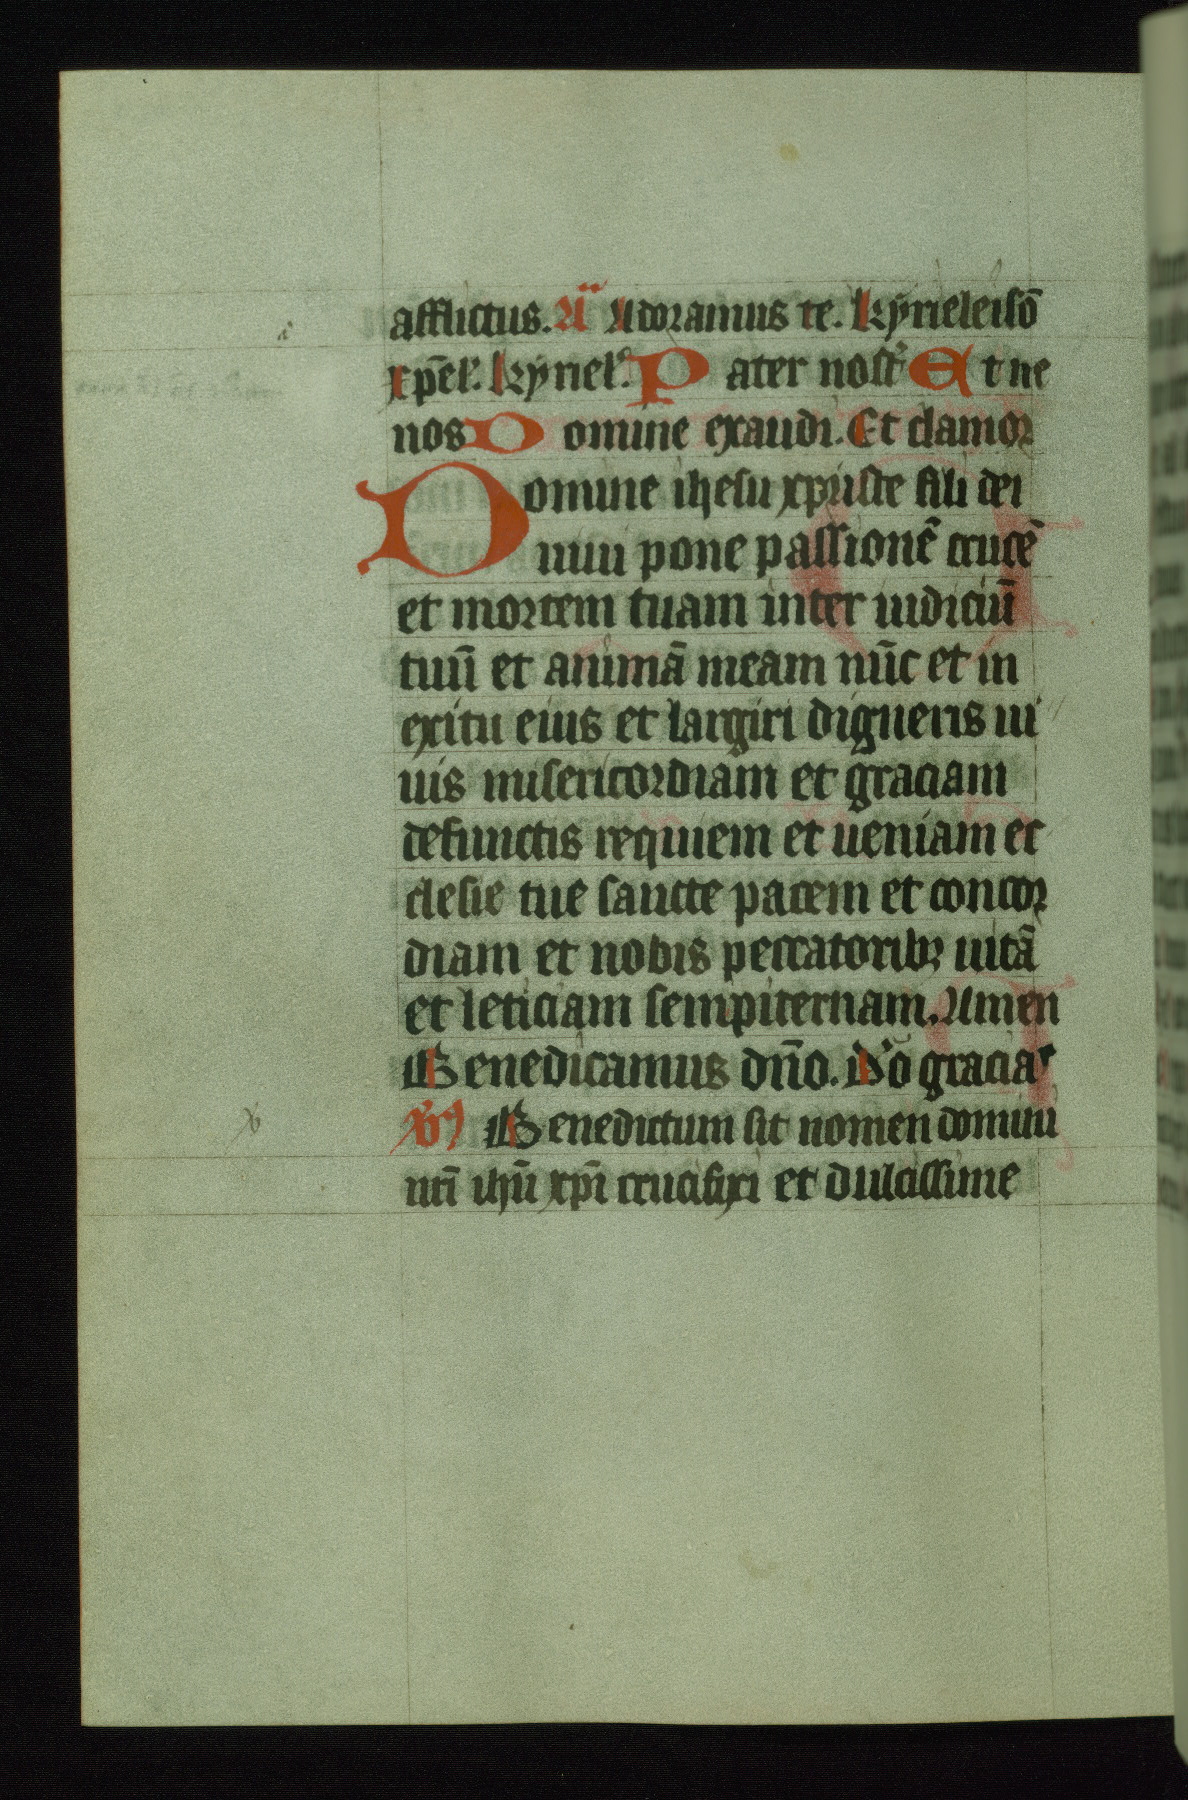 afflictus. Aͣ Adoramus te. kyrieleisō
xp̄el'. kyriel'. Pater nost' Et ne
nos Domine exaudi. Et clamor
Domine ihesu xp̄iste fili dei
uiui pone passionē crucē
et mortem tuam inter iudiciū
tuū et animā meam nūc et in
exitu eius et largiri digneris ui
uis misericordiam et graciam
defunctis requiem et ueniam ec
clesie tue sancte pacem et concor
diam et nobis peccatoribꝫ uitā
et leticiam sempiternam. Amen
Benedicamus dn̄o. Do gracias
Benedictum sit nomen domini
nr̄i ihū xp̄i crucifixi et dulcissime